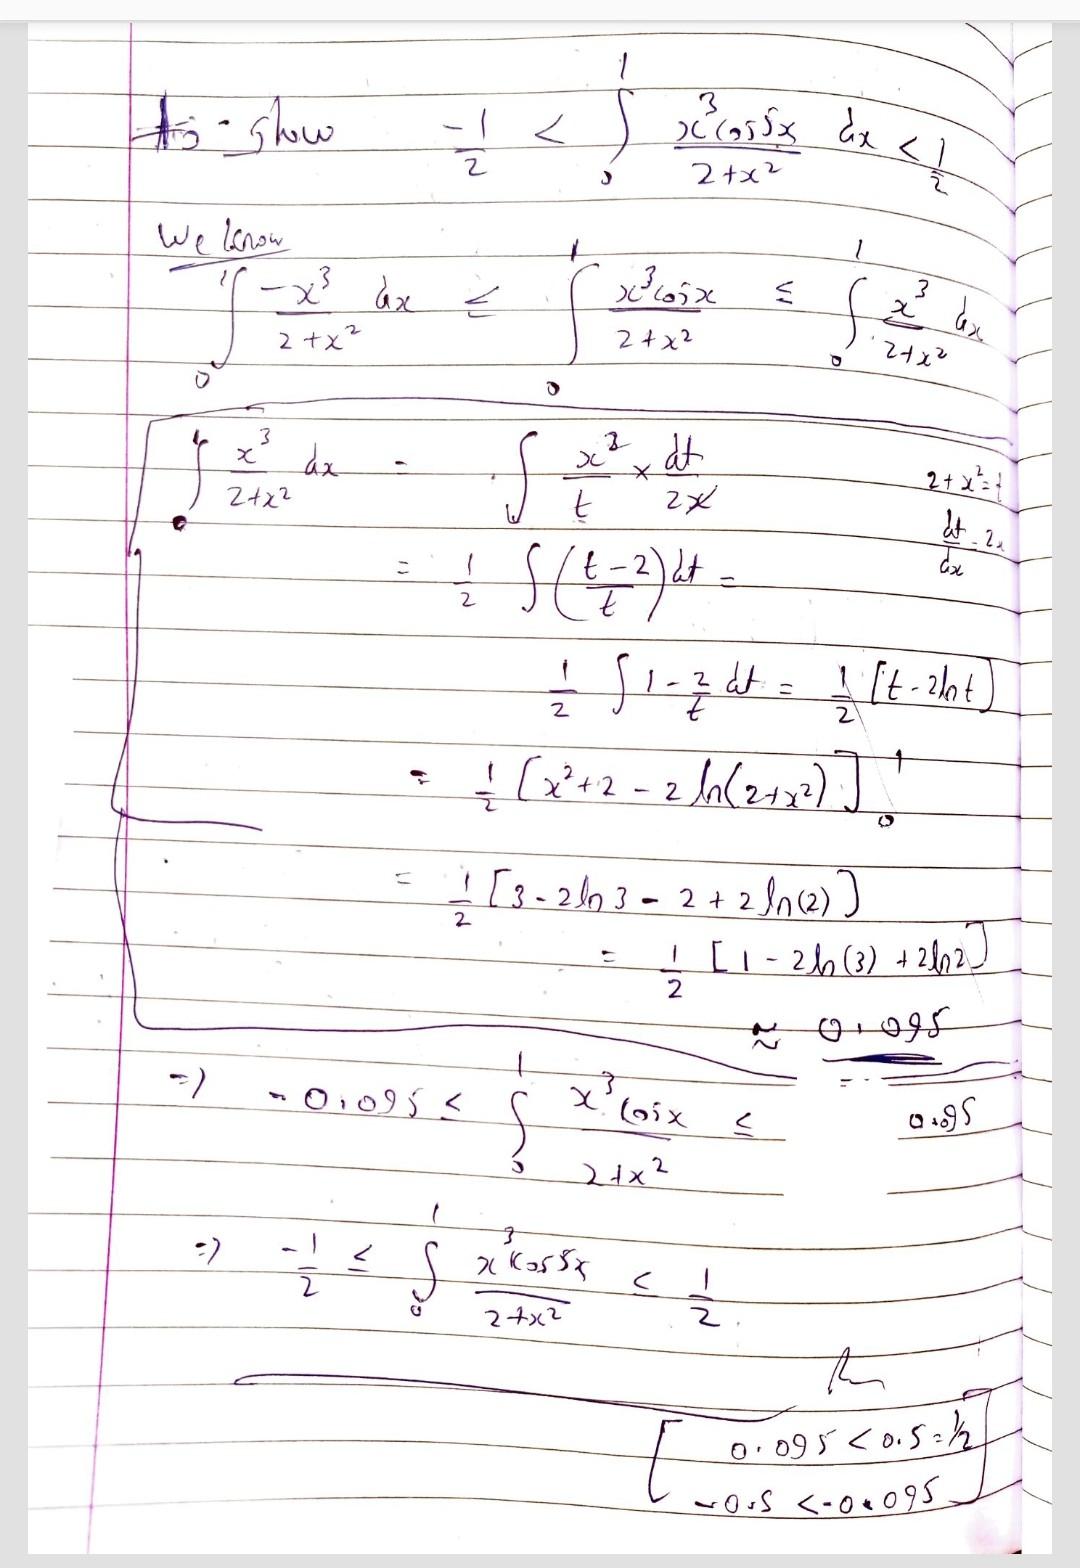 to - show -1/2 < ∫₀¹ x³cos5x/(2+x²) dx < 1/2
We know
∫₀¹ -x³/(2+x²) dx ≤ ∫₀¹ x³cosx/(2+x²) ≤ ∫₀¹ x³/(2+x²) dx
∫₀¹ x³/(2+x²) dx = ∫ x³/t × dt/2x 2+x²=t
dt/dx = 2x
= 1/2 ∫ ((t-2)/t) dt =
1/2 ∫ 1 - 2/t dt = 1/2 [t - 2lnt]
= 1/2 [x²+2 - 2 ln(2+x²)]₀¹
= 1/2 [3 - 2ln3 - 2 + 2ln(2)]
= 1/2 [1 - 2ln(3) + 2ln2]
≈ 0.095
=) -0.095 ≤ ∫₀¹ x³cosx/(2+x²) ≤ 0.095
=) -1/2 ≤ ∫₀¹ x³cos5x/(2+x²) < 1/2.
[0.095 < 0.5 = 1/2
-0.5 < -0.095]